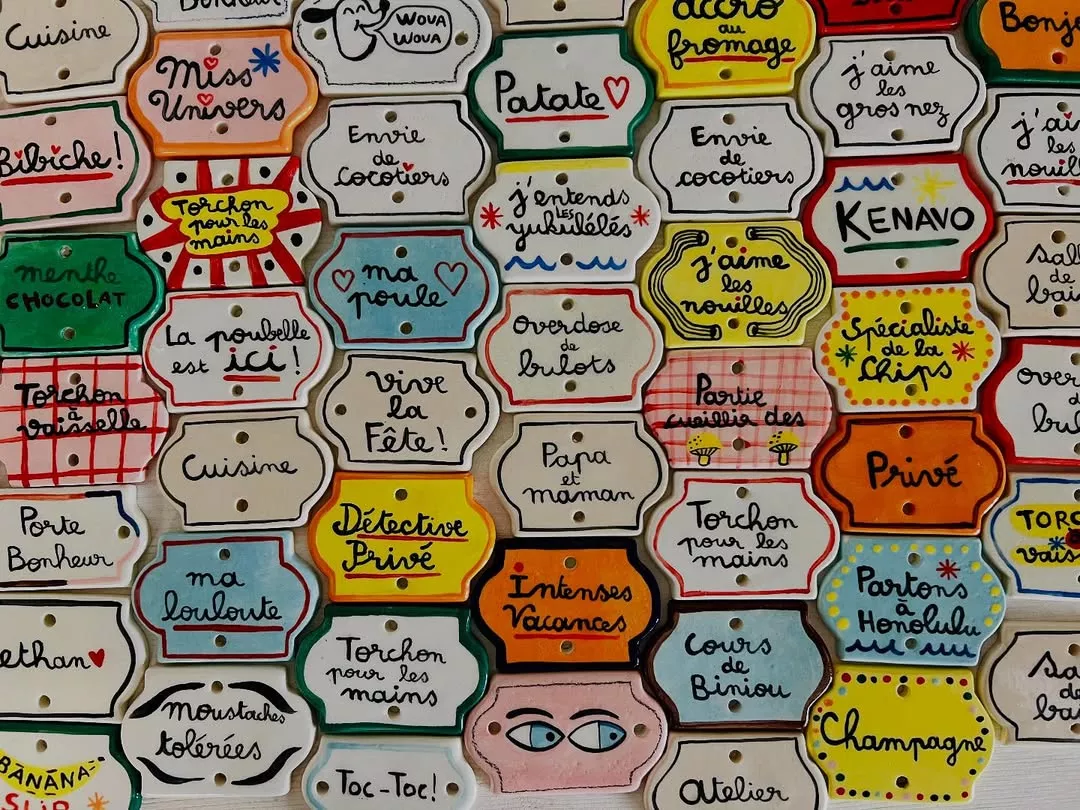 Cuisine
Bonheur
WOUA
WOUA
accro
au
fromage
Bonj
Miss
Univers
Patate
j'aime
les
gros nez
Bibiche!
Envie
de
cocotiers
Envie
de
cocotiers
j'ai
les
nouill
Torchon
pour les
mains
j'entends
LES
yukulélés
KENAVO
menthe
CHOCOLAT
ma
poule
j'aime
les
nouilles
Sall
de
bai
La poubelle
est ici!
overdose
de
bulots
Spécialiste
de la
Chips
Torchon
à
vaisselle
vive
la
Fête!
Partie
cueillir des
over
d
bul
Cuisine
Papa
et
maman
Privé
Porte
Bonheur
Détective
Privé
Torchon
pour les
mains
TORC
vais
ma
louloute
Intenses
Vacances
Partons
à
Honolulu
ethan
Torchon
pour les
mains
Cours
de
Biniou
Sa
de
bai
moustaches
tolérées
Champagne
BANANA
SLIP
Toc-Toc!
Atelier